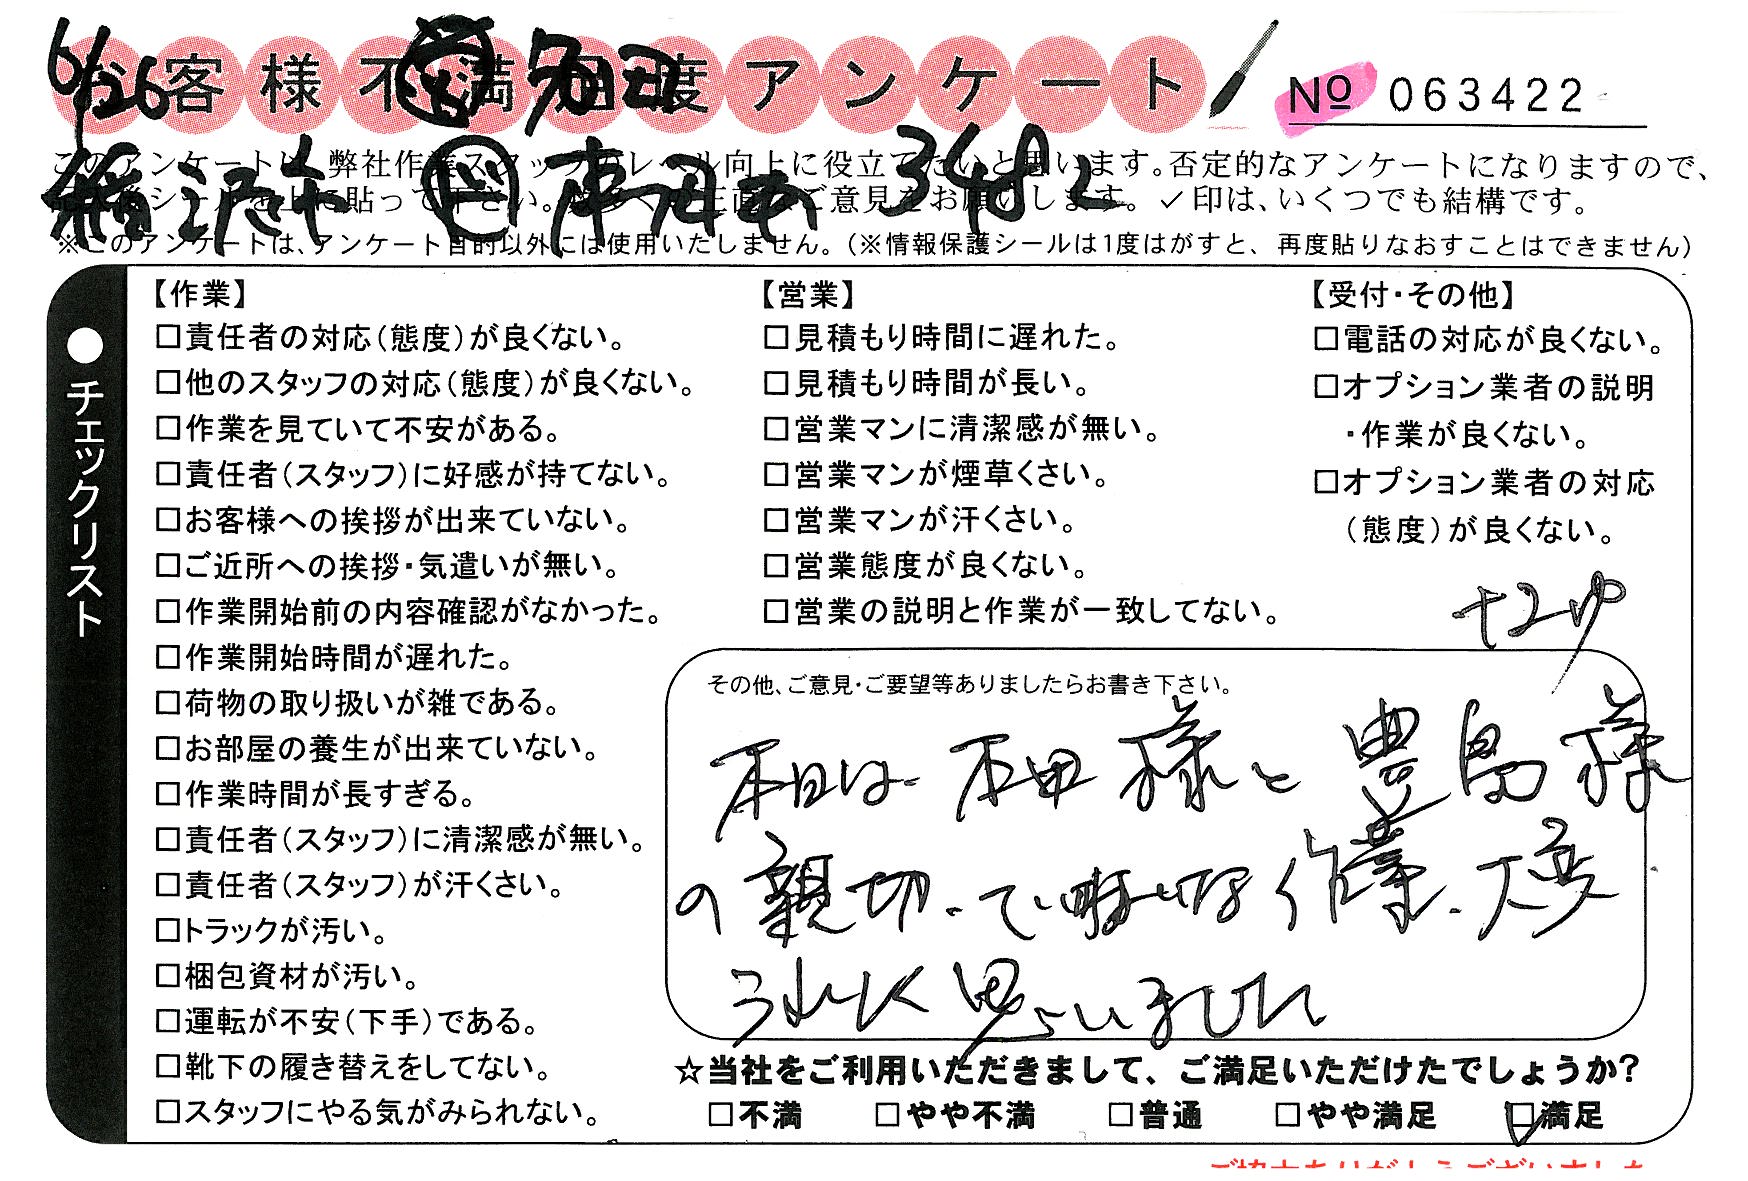 6/26
お客様不満足度アンケート
No 063422
このアンケートは、弊社作業スタッフのレベル向上に役立てたいと思います。否定的なアンケートになりますので、
稲沢市
348
正直なご意見をお願いします。✓印は、いくつでも結構です。
※このアンケートは、アンケート目的以外には使用いたしません。(※情報保護シールは1度はがすと、再度貼りなおすことはできません)
●チェックリスト
【作業】
□責任者の対応(態度)が良くない。
□他のスタッフの対応(態度)が良くない。
□作業を見ていて不安がある。
□責任者(スタッフ)に好感が持てない。
□お客様への挨拶が出来ていない。
□ご近所への挨拶・気遣いが無い。
□作業開始前の内容確認がなかった。
□作業開始時間が遅れた。
□荷物の取り扱いが雑である。
□お部屋の養生が出来ていない。
□作業時間が長すぎる。
□責任者(スタッフ)に清潔感が無い。
□責任者(スタッフ)が汗くさい。
□トラックが汚い。
□梱包資材が汚い。
□運転が不安(下手)である。
□靴下の履き替えをしてない。
□スタッフにやる気がみられない。
【営業】
□見積もり時間に遅れた。
□見積もり時間が長い。
□営業マンに清潔感が無い。
□営業マンが煙草くさい。
□営業マンが汗くさい。
□営業態度が良くない。
□営業の説明と作業が一致してない。
【受付・その他】
□電話の対応が良くない。
□オプション業者の説明
・作業が良くない。
□オプション業者の対応
(態度)が良くない。
その他、ご意見・ご要望等ありましたらお書き下さい。
本日は、本田様と豊島様
の親切、ていねいな作業、大変
うれしく思いました
☆当社をご利用いただきまして、ご満足いただけたでしょうか?
□不満 □やや不満 □普通 □やや満足 ☑満足
ご協力ありがとうございました